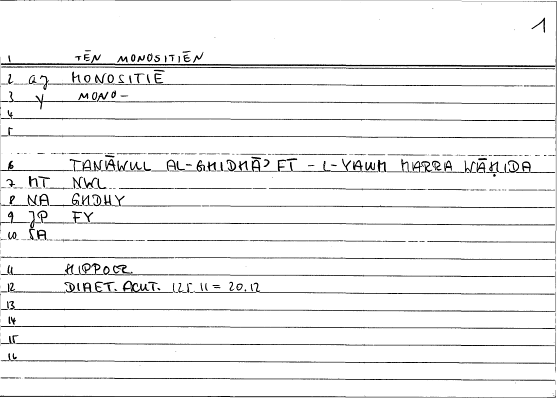 1
1 TĒN MONOSITIĒN
2 aj MONOSITIĒ
3 y MONO-
4
5
6 TANĀWUL AL-GHIDHĀʾ FĪ - L-YAWM MARRA WĀḤIDA
7 MT NWL
8 NA GHDHY
9 JP FY
10 SA
11 HIPPOCR
12 DIAET. ACUT. 125.11 = 20.12
13
14
15
16